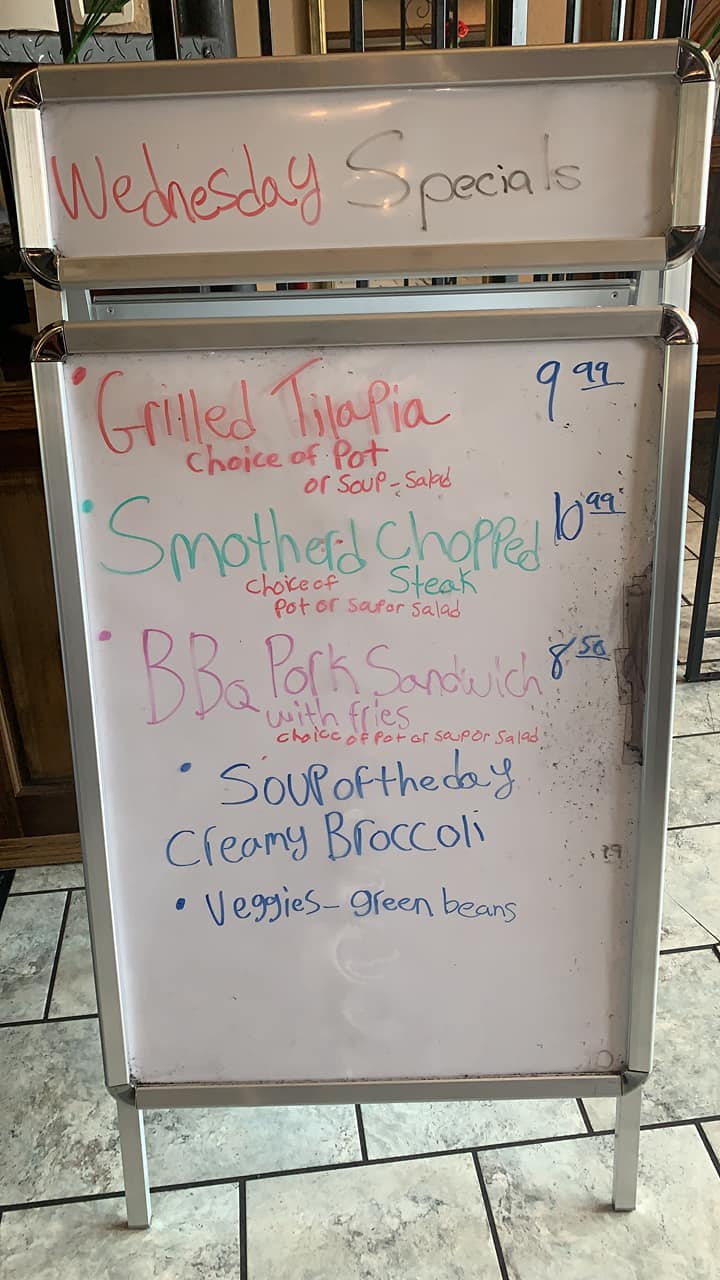 Wednesday Specials
• Grilled Tilapia 9 99
choice of Pot
or soup - Salad
• Smotherd Chopped 10 99
choice of Steak
Pot or soup or salad
• BBQ Pork Sandwich 8 50
with fries
choice of Pot or soup or salad
• Soup of the day
Creamy Broccoli
• Veggies - green beans